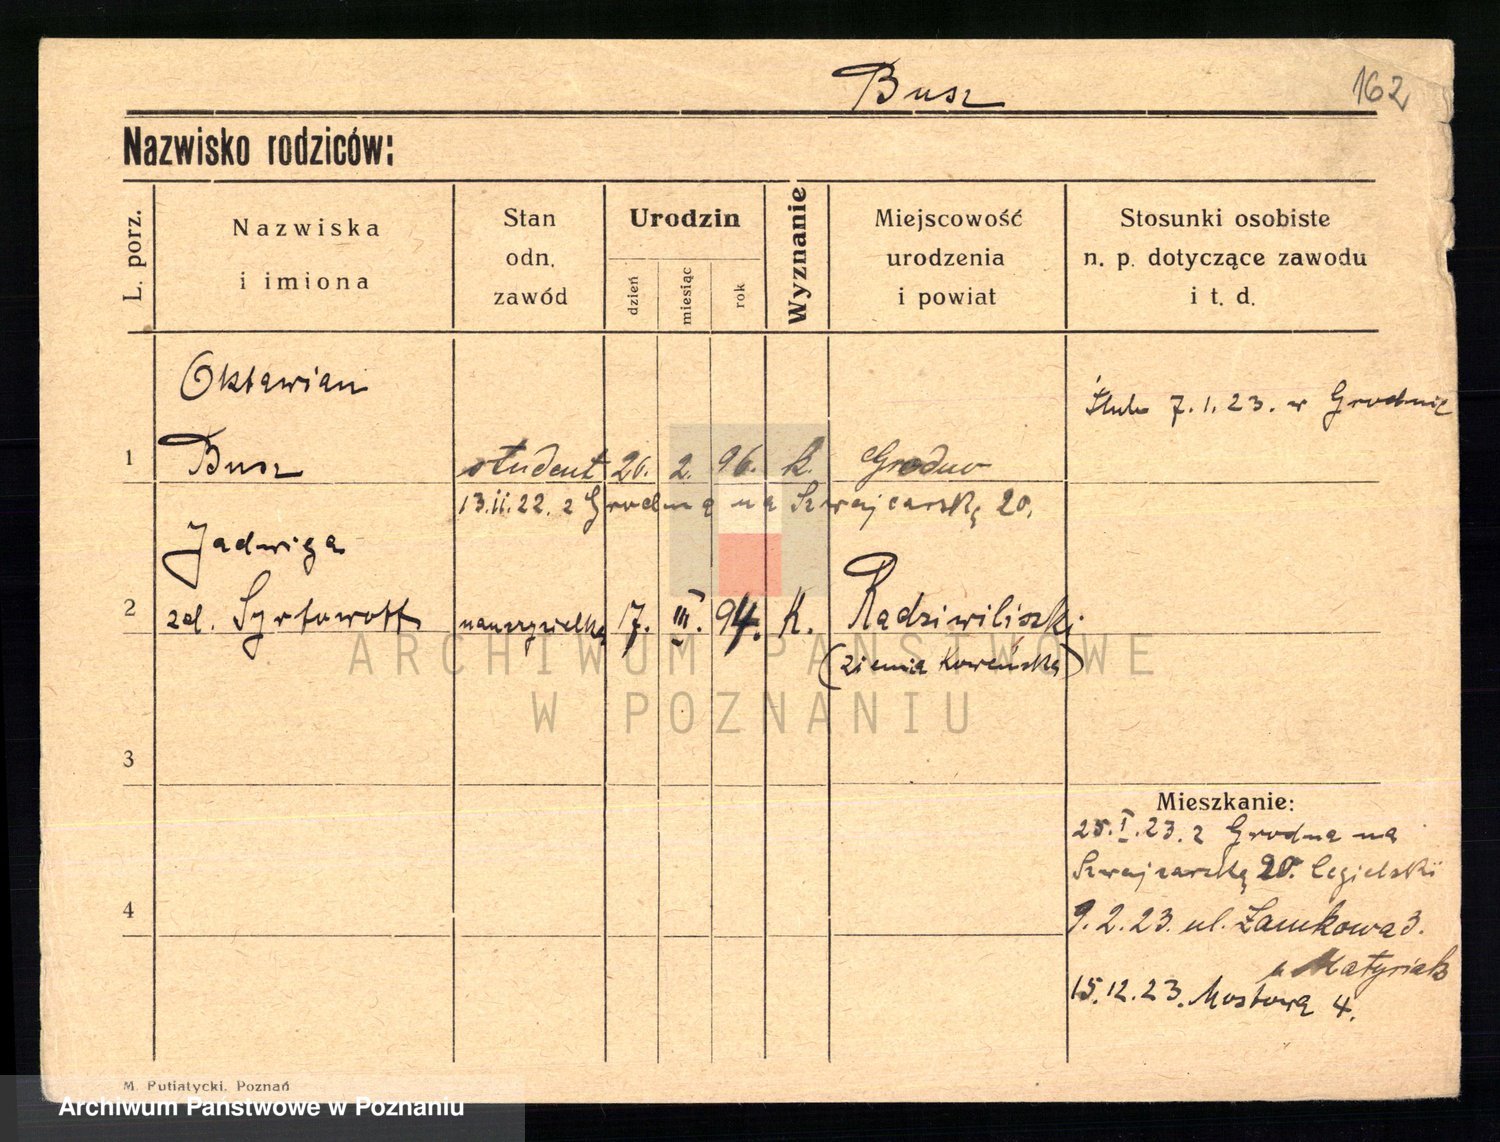 Busz
162
Nazwisko rodziców:
L. porz.
Nazwiska
i imiona
Stan
odn.
zawód
Urodzin
dzień
miesiąc
rok
Wyznanie
Miejscowość
urodzenia
i powiat
Stosunki osobiste
n. p. dotyczące zawodu
i t. d.
Oktawian
Ślub 7.1.23. w Grodnie
1 Busz student 26. 2. 96. k. Grodno
13.II.22. z Grodna na Szwajcarską 20.
Jadwiga
2 zd. Syrtowtt nauczycielka 17. III. 94. K. Radziwiliszki
(ziemia Koweńska)
ARCHIWUM PAŃSTWOWE
W POZNANIU
3
Mieszkanie:
25.I.23. z Grodna na
Szwajcarską 20. Cegielski
4
9.2.23. ul. Zamkowa 3.
u Matysiak
15.12.23. Mostowa 4.
M. Putiatycki, Poznań
Archiwum Państwowe w Poznaniu